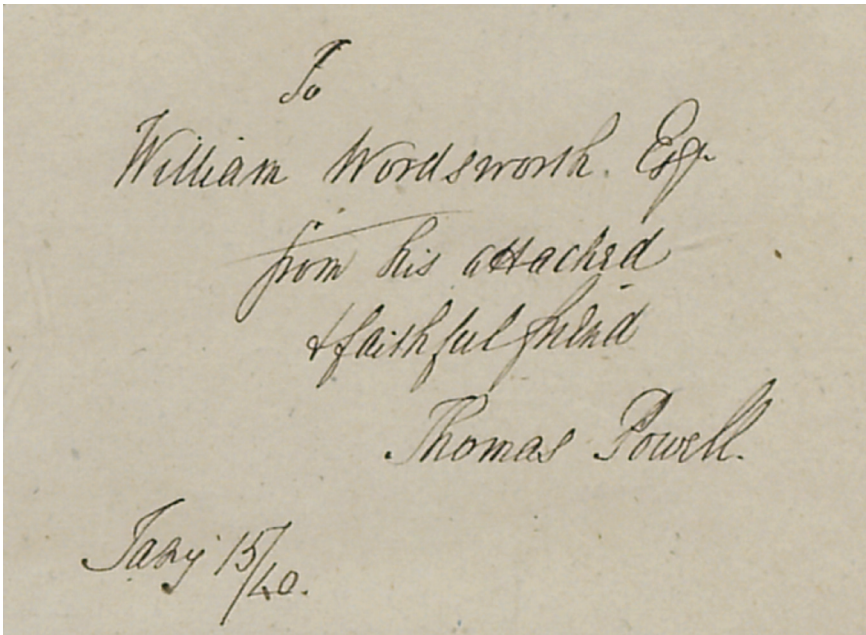 To
William Wordsworth. Esqr.
from his attached
& faithful friend
Thomas Powell.
Jany 15/40.